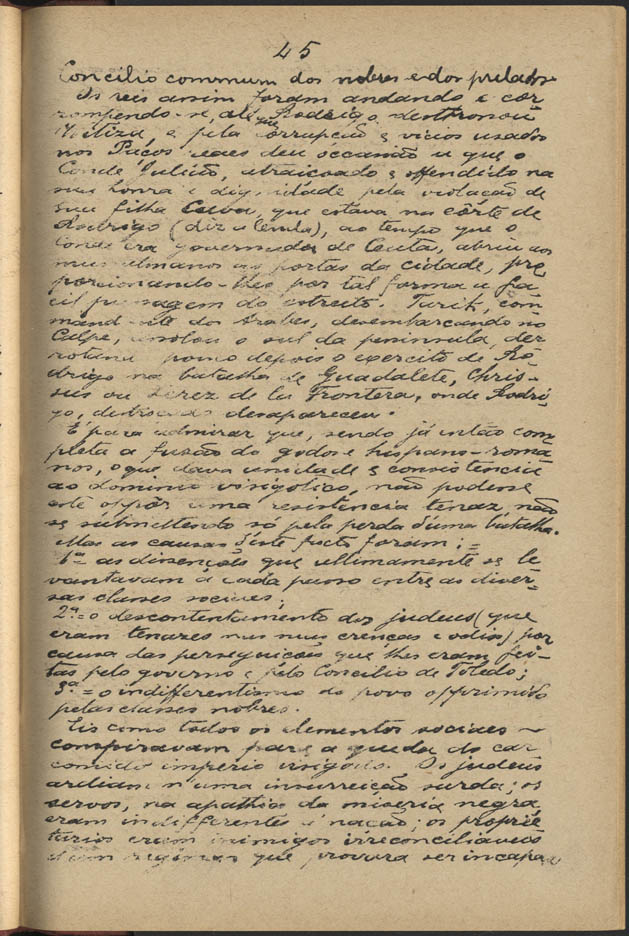 45
Concilio commum dos nobres e dos prelados.
Os reis assim foram andando e cor-
rompendo-se, até que Rodrigo, desthronou
Witiza, e pela corrupção e vicios usados
nos Paços reaes deu occasião a que o
Conde Julião, atraiçoado e offendido na
sua honra e dignidade pela violação de
sua filha Cava, que estava na côrte de
Rodrigo (diz a lenda), ao tempo que o
Conde era governador de Ceuta, abriu aos
musulmanos as portas da cidade, pro
porcionando-lhes por tal forma a fa-
cil passagem do estreito. Tarik, com-
mandante dos Arabes, desembarcando no
Calpe, assolou o sul da peninsula, der
rotando pouco depois o exercito de Ro-
drigo na batalha de Guadalete, Chris-
sus ou Xerez de la Frontera, onde Rodri-
go, destroçado desapareceu.
É para admirar que, sendo já então com
pleta a fusão de godos e hispano-roma
nos, o que dava unidade e consistencia
ao dominio visigotico, não podesse
este oppôr uma resistencia tenaz, não
se submettendo só pela perda d'uma batalha.
Mas as causas d'este facto foram: =
1ª = as disenções que ultimamente se le
vantavam a cada passo entre as diver-
sas classes sociaes;
2ª = o descontentamento dos judeus (que
eram tenazes nas suas crenças e odios) por
causa das perseguições que lhes eram fei-
tas pelo governo e pelo Concilio de Toledo;
3ª = o indifferentismo do povo opprimido
pelas classes nobres.
Eis como todos os elementos sociaes
conspiravam para a queda do car
comido imperio visigodo. Os judeus
ardiam n'uma insurreição surda; os
servos, na apathia da miseria negra,
eram indifferentes á nação; os proprie
tarios eram inimigos irreconciliaveis
d'um regimen que provara ser incapaz